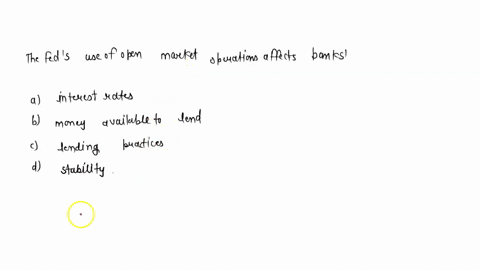 The Fed's use of open market operations affects banks'
a) interest rates
b) money available to lend
c) lending practices
d) stability.